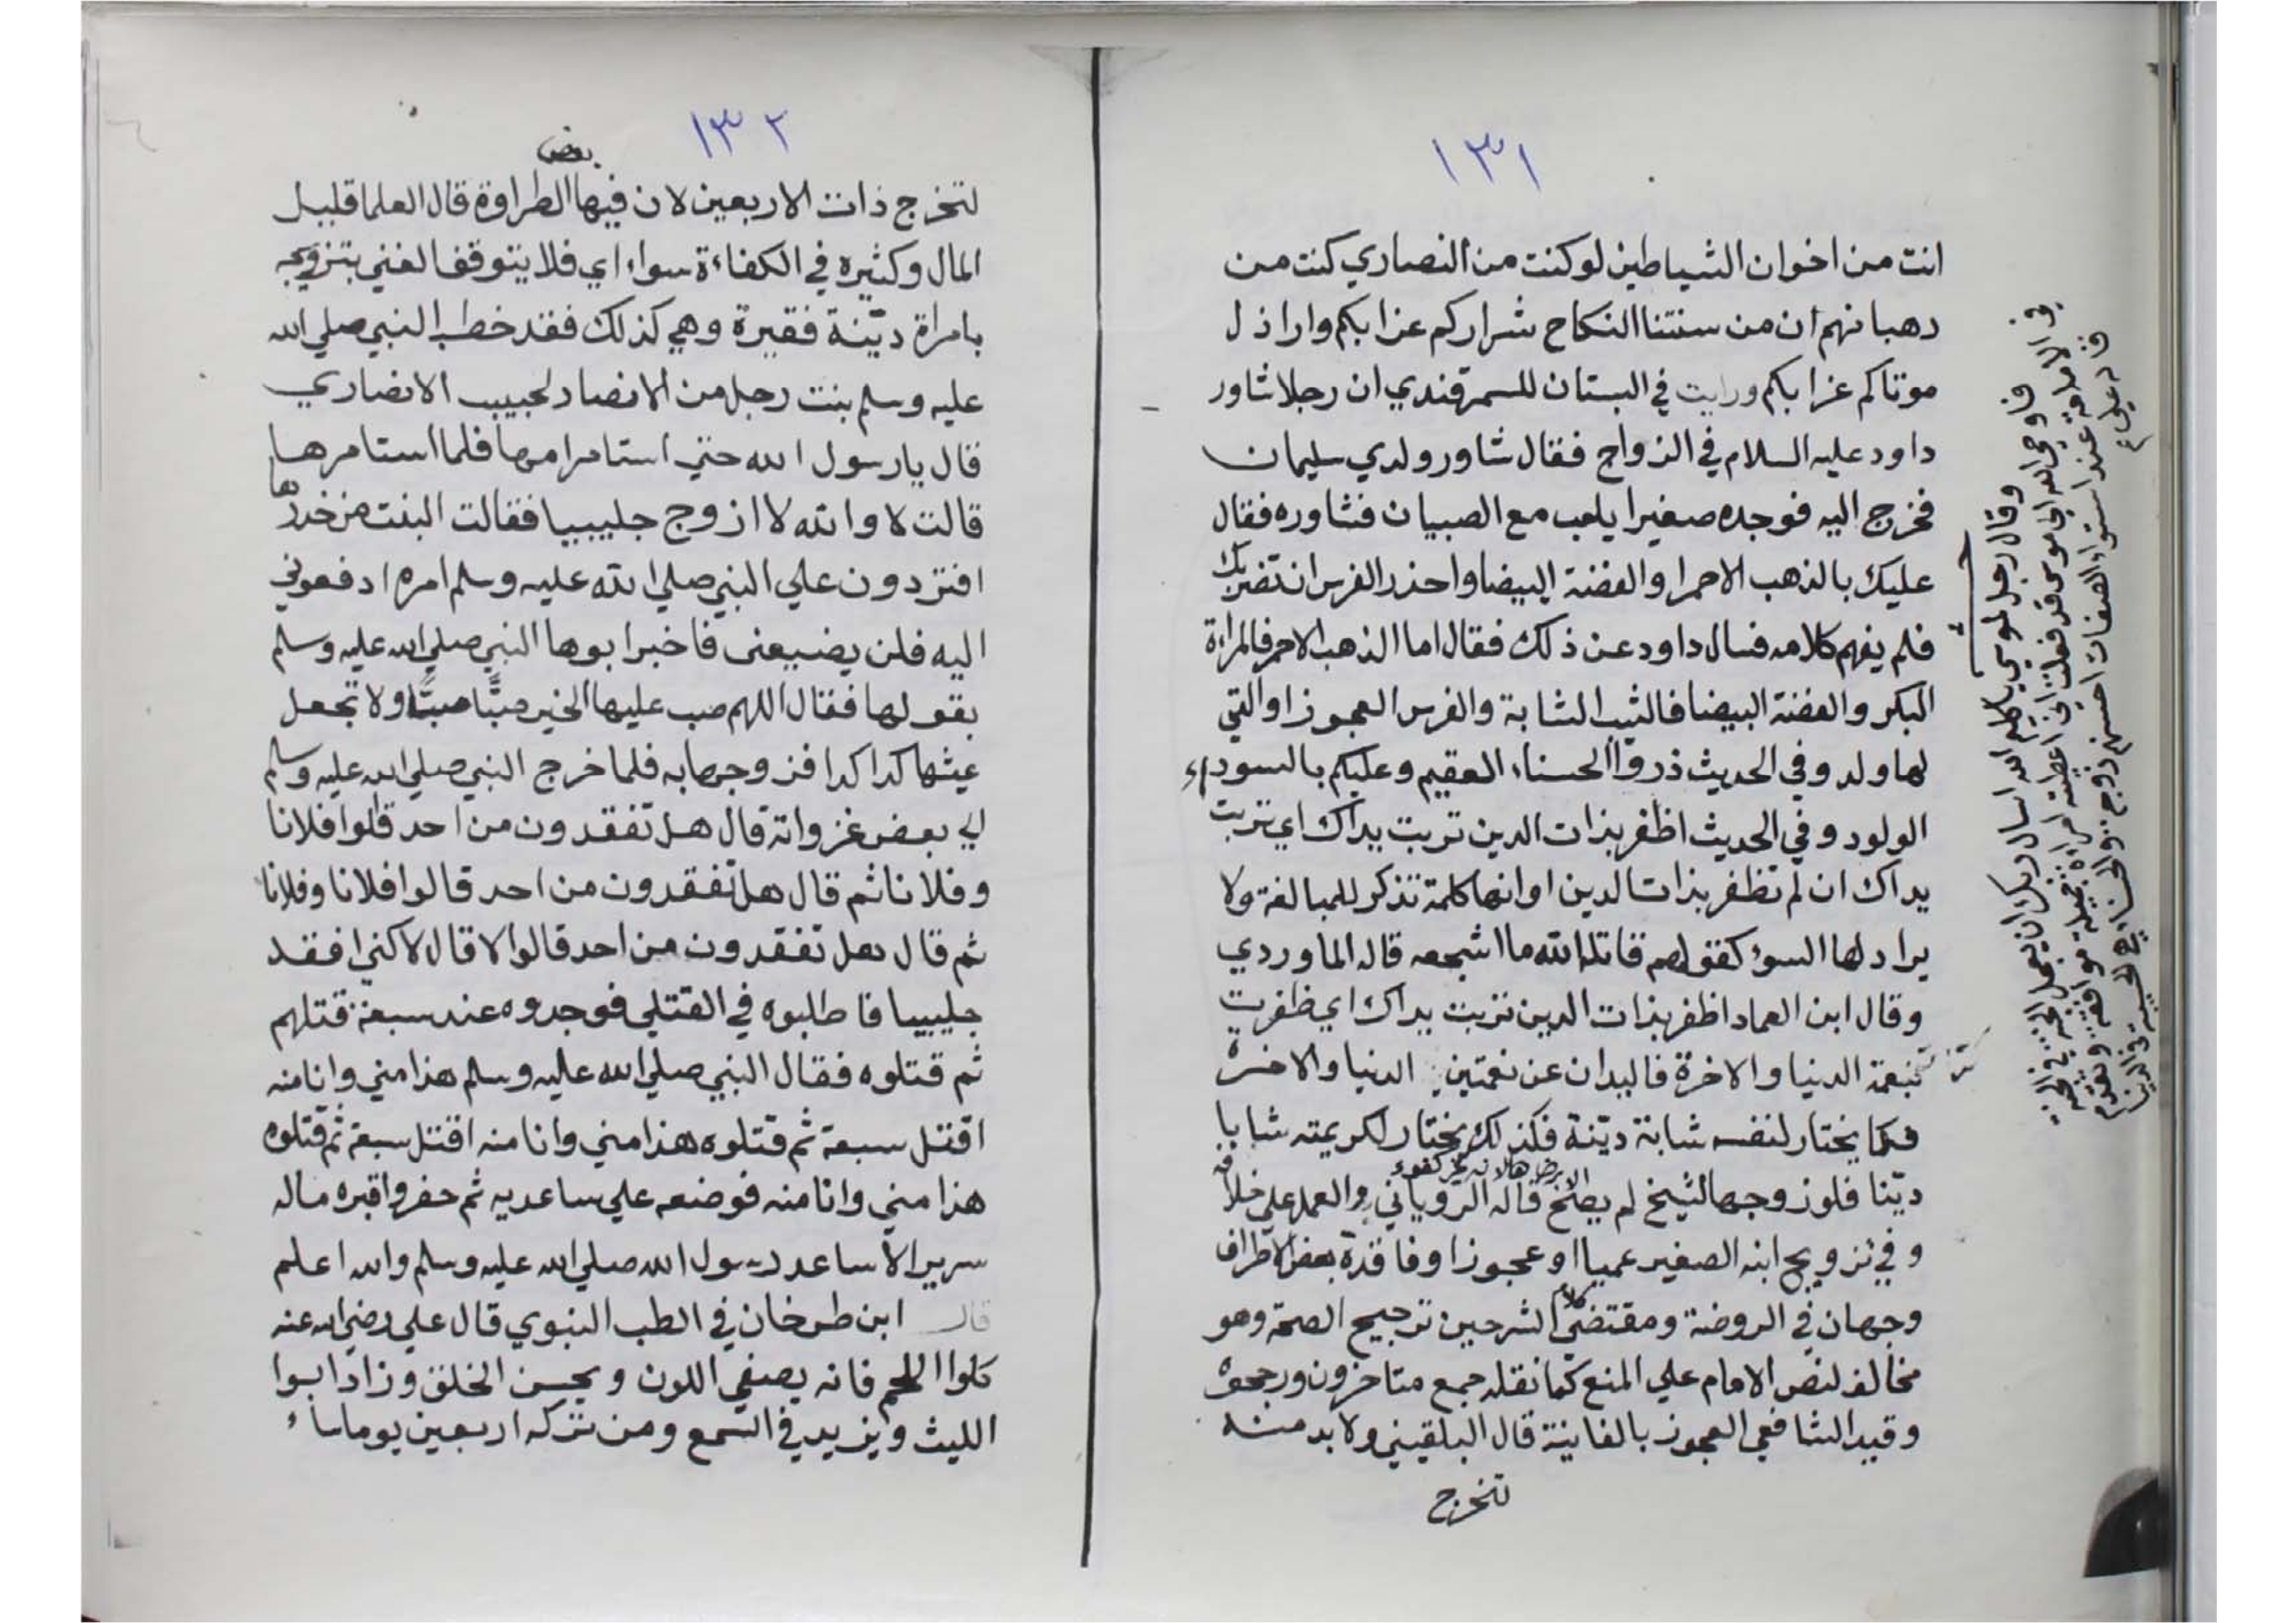 ١٣١
انت من اخوان الشياطين لو كنت من النصاري كنت من
رهبانهم ان من سنتنا النكاح شراركم عزابكم واراذل
موتاكم عزابكم ورايت في البستان للسمرقندي ان رجلا شاور
داود عليه السلام في الزواج فقال شاور ولدي سليمان
فخرج اليه فوجده صغيرا يلعب مع الصبيان فشاوره فقال
عليك بالذهب الاحمر او الفضة البيضا واحذر الفرس ان تضربك
فلم يفهم كلامه فسال داود عن ذلك فقال اما الذهب الاحمر فالمراة
البكر والفضة البيضا فالثيب الشابة والفرس العجوز او التي
لها ولد وفي الحديث ذروا الحسناء العقيم وعليكم بالسوداء
الولود وفي الحديث اظفر بذات الدين تربت يداك اي تربت
يداك ان لم تظفر بذات الدين او انها كلمة تذكر للمبالغة ولا
يراد لها السوء كقولهم قاتله الله ما اشجعه قاله الماوردي
وقال ابن العماد اظفر بذات الدين تربت يداك اي ظفرت
بنعمة الدنيا والاخرة فاليدان عن نعمتين الدنيا والاخرة
فكما يختار لنفسه شابة دينة فكذلك يختار لكريمته شابا
دينا فلو زوجها لشيخ لم يصح الا برضاها لانه غير كفوء قاله الروياني والعمل علي خلافه
وفي تزويج ابنه الصغير عميا او عجوزا او فاقدة بعض الاطراف
وجهان في الروضة ومقتضي كلام الشرحين ترجيح الصحة وهو
مخالف لنص الامام علي المنع كما نقله جمع متاخرون ورجحوه
وقيد الشافعي العجوز بالفانية قال البلقيني ولا بد منه
تخرج
وقال رجل لموسي يا كليم الله اسال ربك ان يعجل الجنة في الجنة
فاوحي الله الي موسي قد فعلت اني اعطيته امراة جميلة موافقة ويقدم
في الامامة عند استواء الصفات احسنهم زوجة والحسناء هي الحسيبة في الدين
١٣٢
لتخرج ذات الاربعين لان فيها بعض الطراوة قال العلما قليل
المال وكثيره في الكفاءة سواء اي فلا يتوقف الغني بتزويجه
بامراة دينة فقيرة وهي كذلك فقد خطب النبي صلي الله
عليه وسلم بنت رجل من الانصار لجبيب الانصاري
قال يا رسول الله حتي استامر امها فلما استامرها
قالت لا والله لا ازوج جليبيبا فقالت البنت من خدرها
افتردون علي النبي صلي الله عليه وسلم امره ادفعوني
اليه فلن يضيعني فاخبر ابوها النبي صلي الله عليه وسلم
بقولها فقال اللهم صب عليها الخير صبا صبا ولا تجعل
عيشها كدا كدا فزوجها به فلما خرج النبي صلي الله عليه وسلم
الي بعض غزواته قال هل تفقدون من احد قالوا فلانا
وفلانا ثم قال هل تفقدون من احد قالوا فلانا وفلانا
ثم قال هل تفقدون من احد قالوا لا قال لاكني افقد
جليبيبا فاطلبوه في القتلي فوجدوه عند سبعة قتلهم
ثم قتلوه فقال النبي صلي الله عليه وسلم هذا مني وانا منه
اقتل سبعة ثم قتلوه هذا مني وانا منه اقتل سبعة ثم قتلوه
هذا مني وانا منه فوضعه علي ساعديه ثم حفروا قبره ماله
سرير الا ساعد رسول الله صلي الله عليه وسلم والله اعلم
قال ابن طرخان في الطب النبوي قال علي رضي الله عنه
كلوا اللحم فانه يصفي اللون ويحسن الخلق وزاد ابوا
الليث ويزيد في السمع ومن تركه اربعين يوما ساء